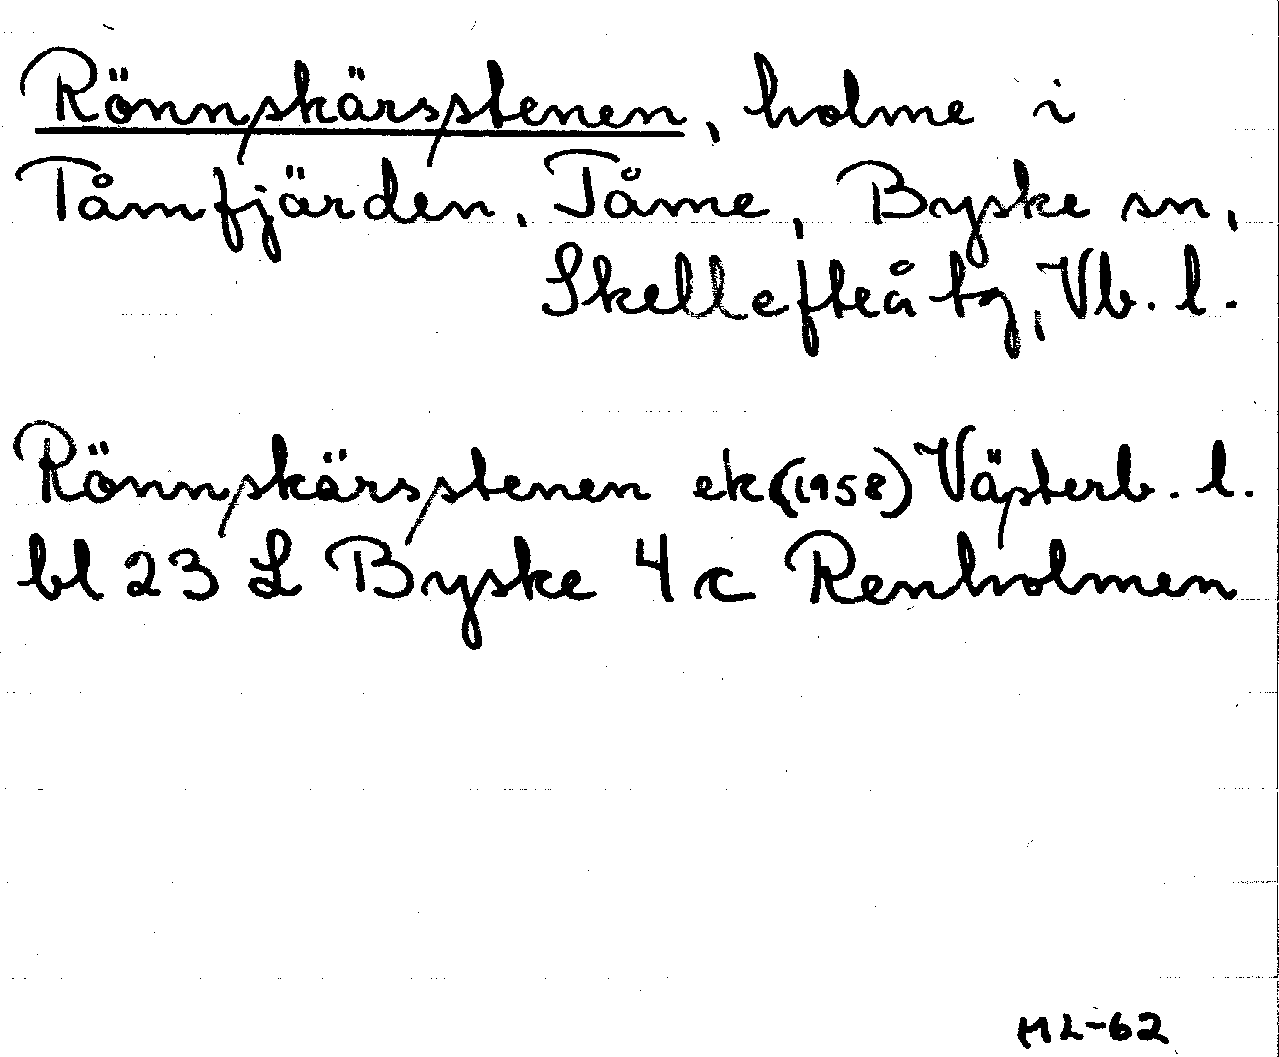 Rönnskärsstenen, holme i
Tåmfjärden, Tåme, Byske sn,
Skellefteå tg, Vb. l.
Rönnskärsstenen ek (1958) Västerb. l.
bl 23 L Byske 4 c Renholmen
ML-62